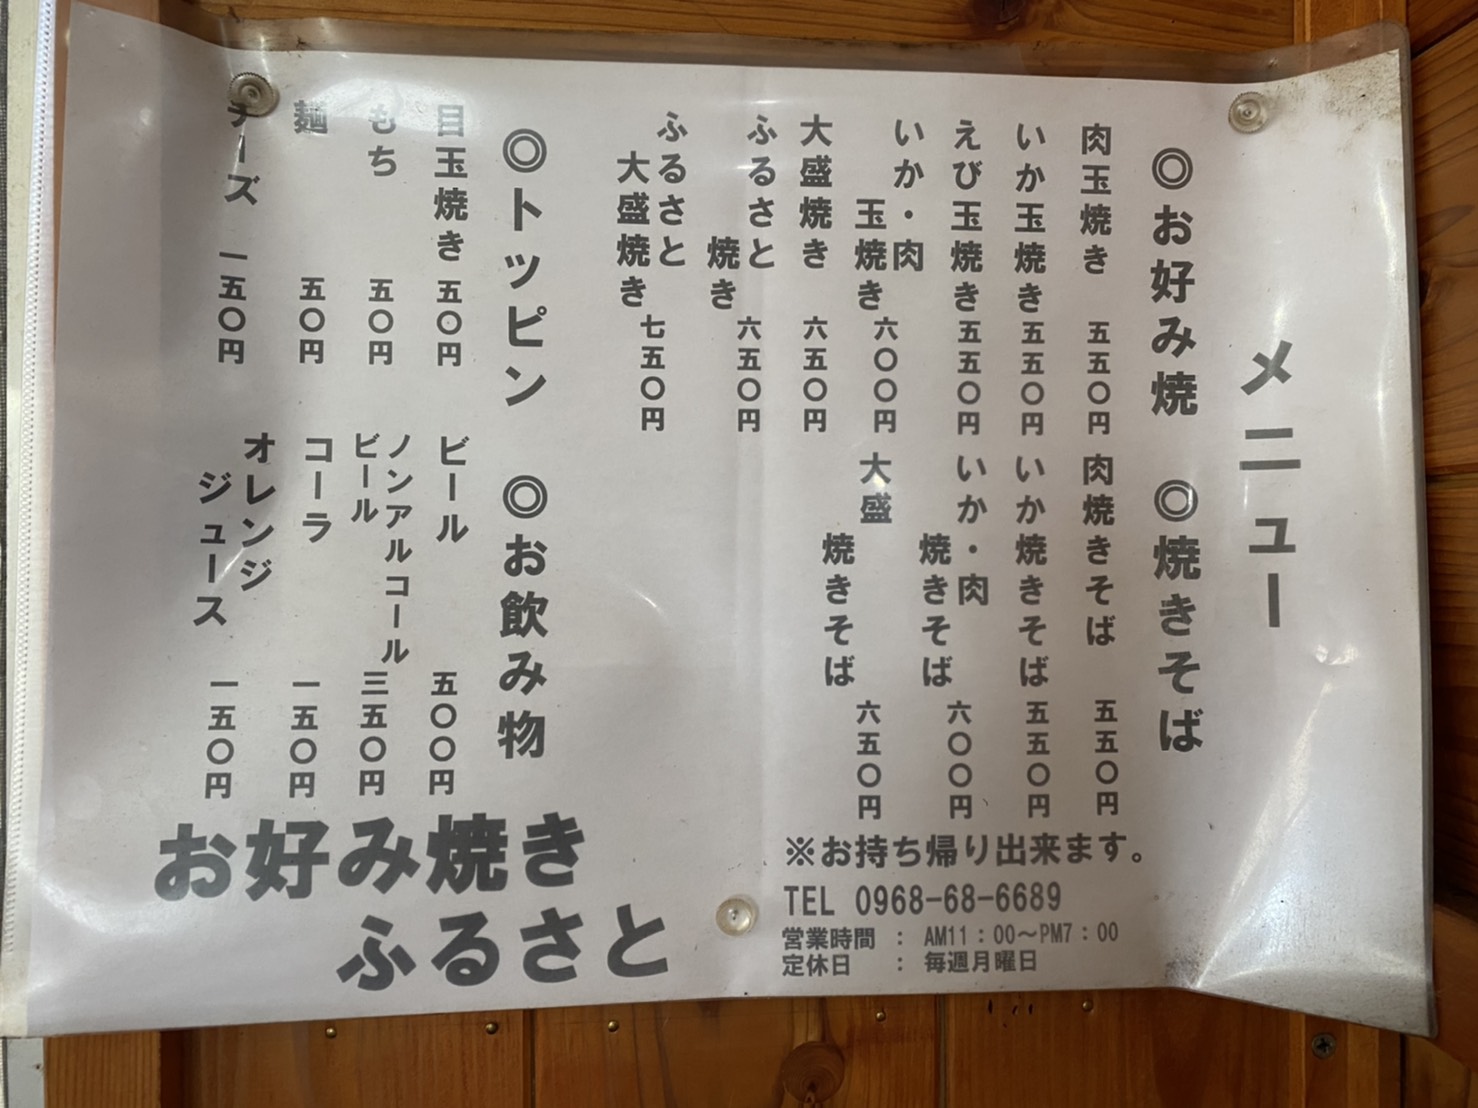 メニュー
◎お好み焼
肉玉焼き 五五〇円
いか玉焼き 五五〇円
えび玉焼き 五五〇円
いか・肉
玉焼き 六〇〇円
大盛焼き 六五〇円
ふるさと
焼き 六五〇円
ふるさと
大盛焼き 七五〇円
◎焼きそば
肉焼きそば 五五〇円
いか焼きそば 五五〇円
いか・肉
焼きそば 六〇〇円
大盛
焼きそば 六五〇円
◎トッピン
目玉焼き 五〇円
もち 五〇円
麺 五〇円
チーズ 一五〇円
◎お飲み物
ビール 五〇〇円
ノンアルコール
ビール 三五〇円
コーラ 一五〇円
オレンジ
ジュース 一五〇円
※お持ち帰り出来ます。
TEL 0968-68-6689
営業時間 : AM11:00～PM7:00
定休日 : 毎週月曜日
お好み焼き
ふるさと